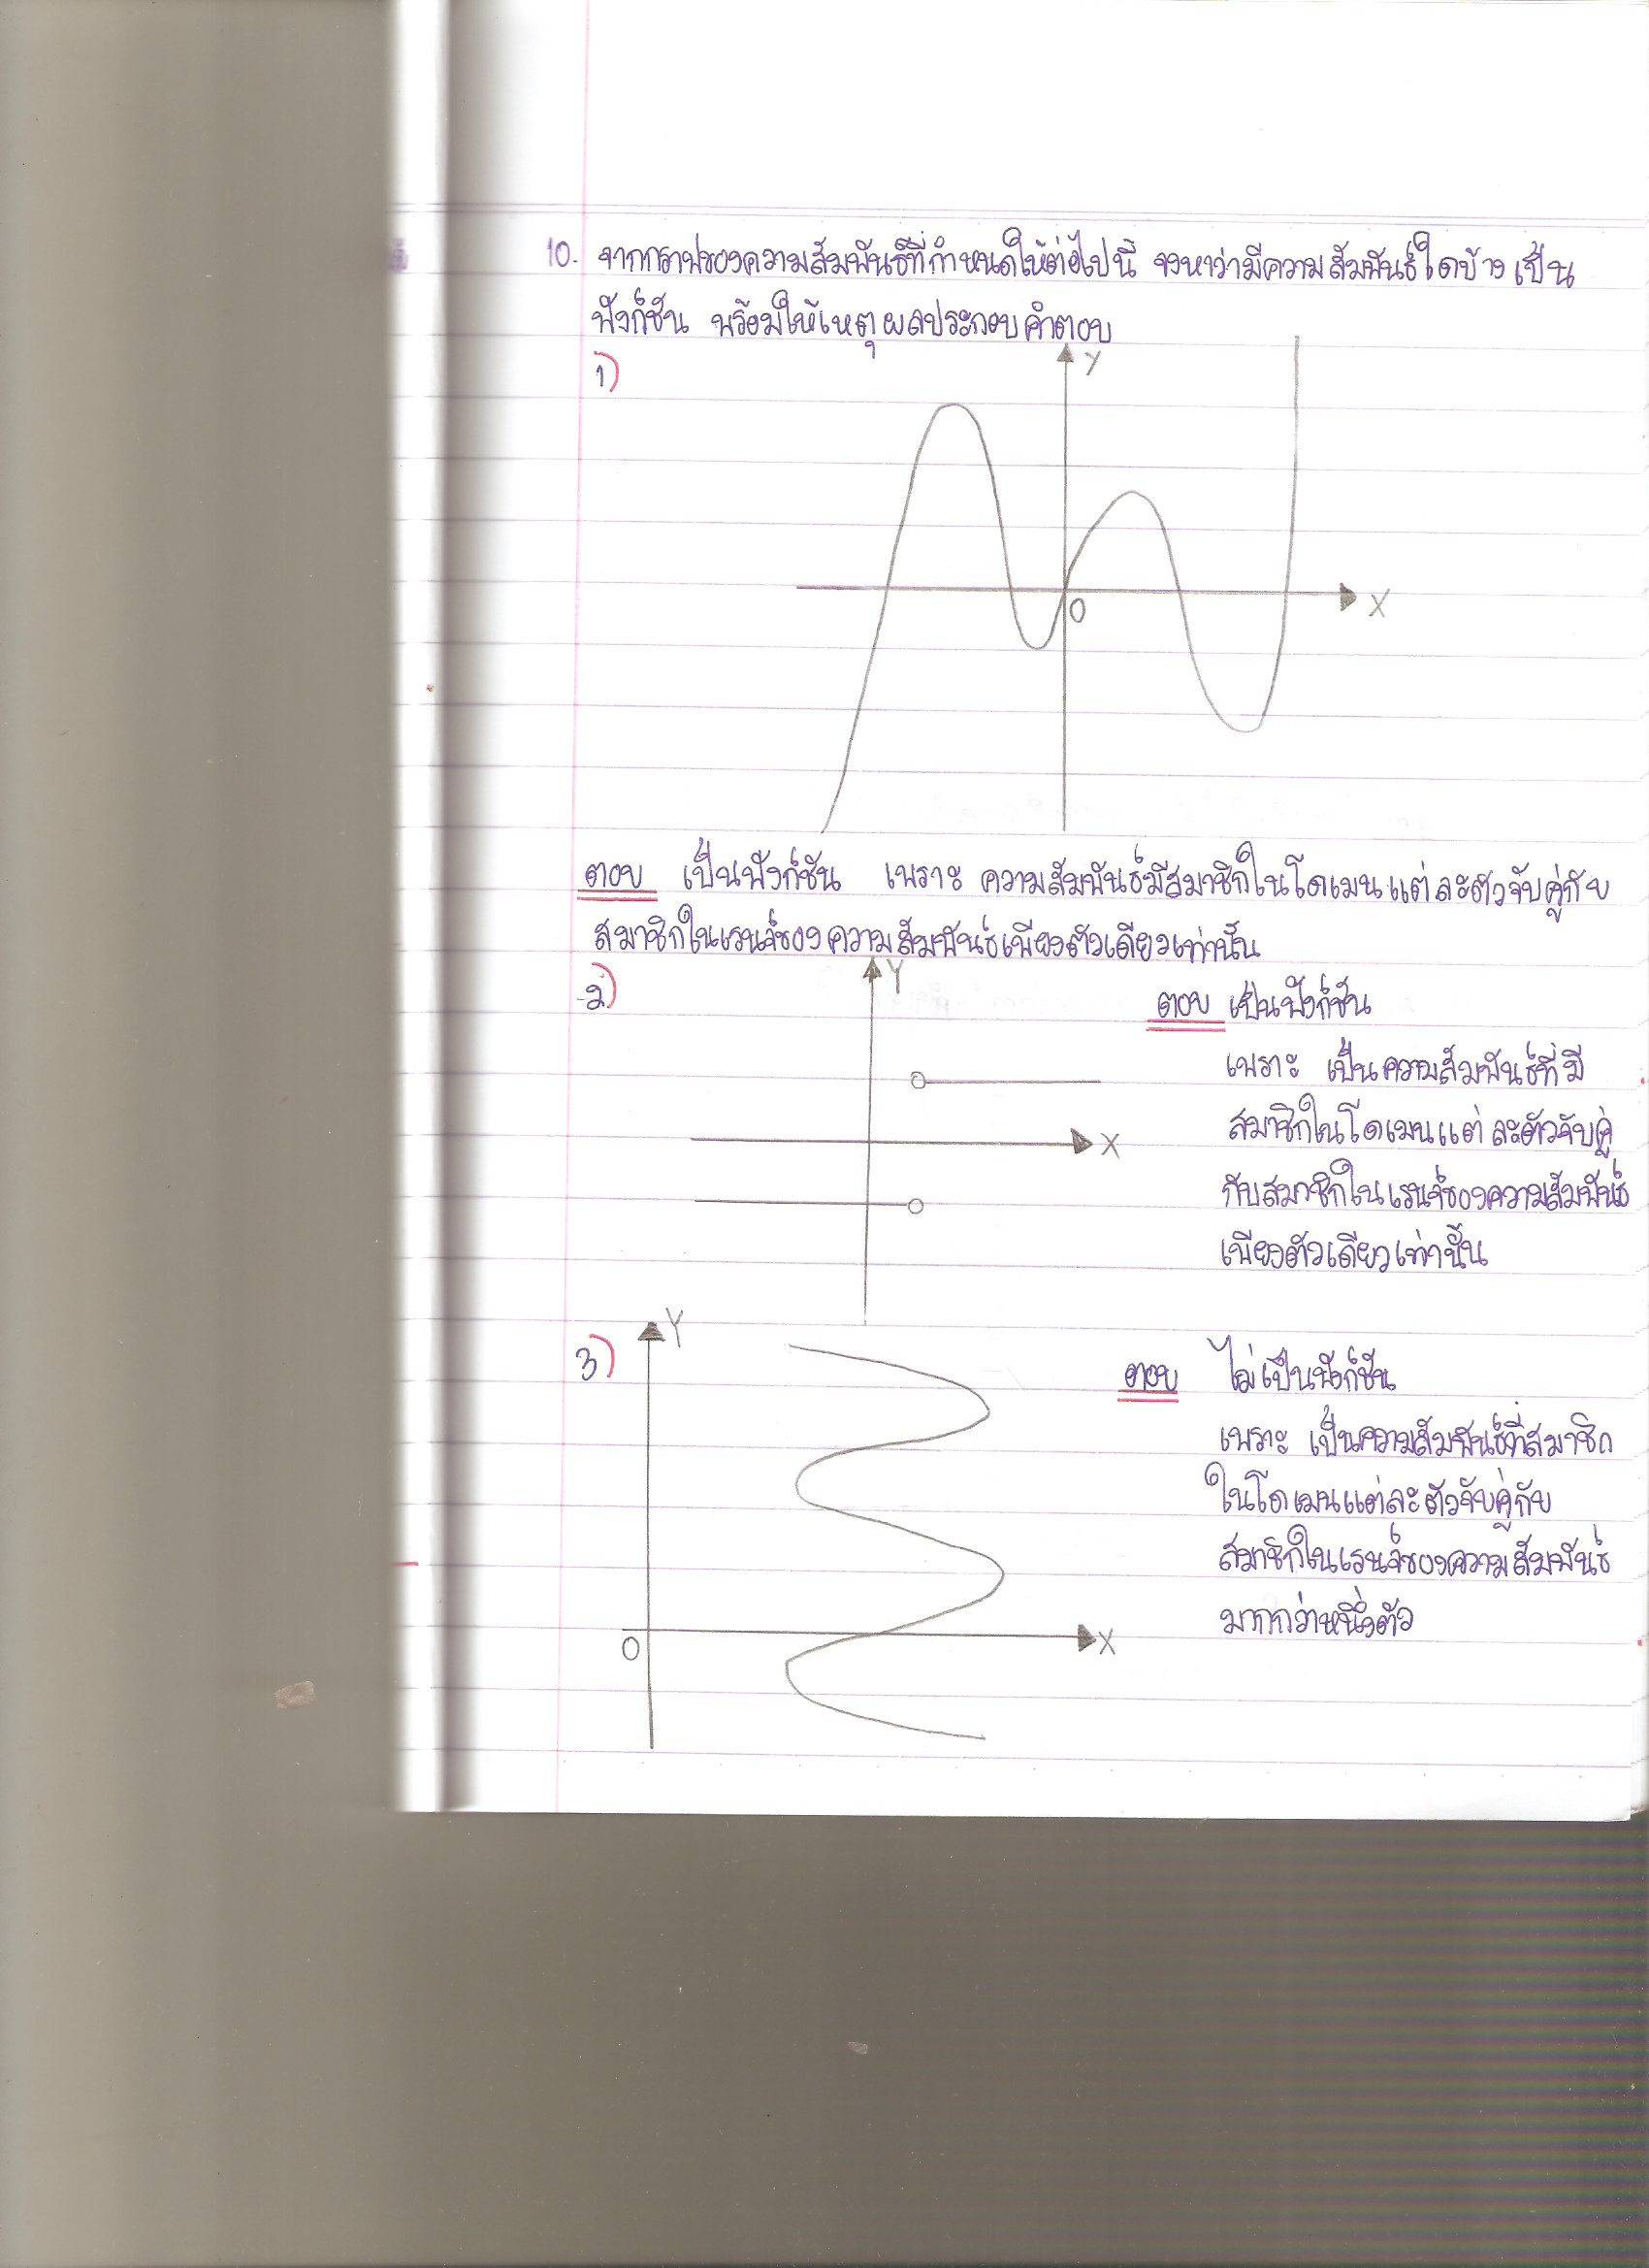 10. จากกราฟของความสัมพันธ์ที่กำหนดให้ต่อไปนี้ จงหาว่ามีความสัมพันธ์ใดบ้างเป็น
ฟังก์ชัน พร้อมให้เหตุผลประกอบคำตอบ
1)
Y
X
0
ตอบ เป็นฟังก์ชัน เพราะ ความสัมพันธ์มีสมาชิกในโดเมนแต่ละตัวจับคู่กับ
สมาชิกในเรนจ์ของความสัมพันธ์เพียงตัวเดียวเท่านั้น
2)
Y
X
ตอบ เป็นฟังก์ชัน
เพราะ เป็นความสัมพันธ์ที่มี
สมาชิกในโดเมนแต่ละตัวจับคู่
กับสมาชิกในเรนจ์ของความสัมพันธ์
เพียงตัวเดียวเท่านั้น
3)
Y
0
X
ตอบ ไม่เป็นฟังก์ชัน
เพราะ เป็นความสัมพันธ์ที่สมาชิก
ในโดเมนแต่ละตัวจับคู่กับ
สมาชิกในเรนจ์ของความสัมพันธ์
มากกว่าหนึ่งตัว